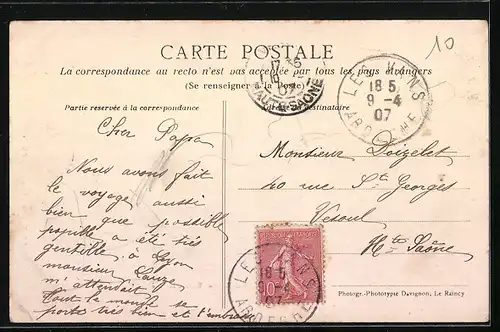 10
CARTE POSTALE
La correspondance au recto n'est pas acceptée par tous les pays étrangers
(Se renseigner à la Poste)
Partie réservée à la correspondance
Cher Papa
Nous avons fait
le voyage aussi
bien que possible
a été très
gentille, à Lyon
monsieur
m'attendait
Tout le monde se
porte très bien et t'embrasse
Monsieur Doizelet
40 rue St Georges
Vesoul
Hte Saône
Photogr.-Phototypie Davignon, Le Raincy
HAUTE-SAONE
07
LES VANS
18 5
9 -4
07
ARDECHE
10
LES VANS
18 5
9 -4
07
ARDECHE